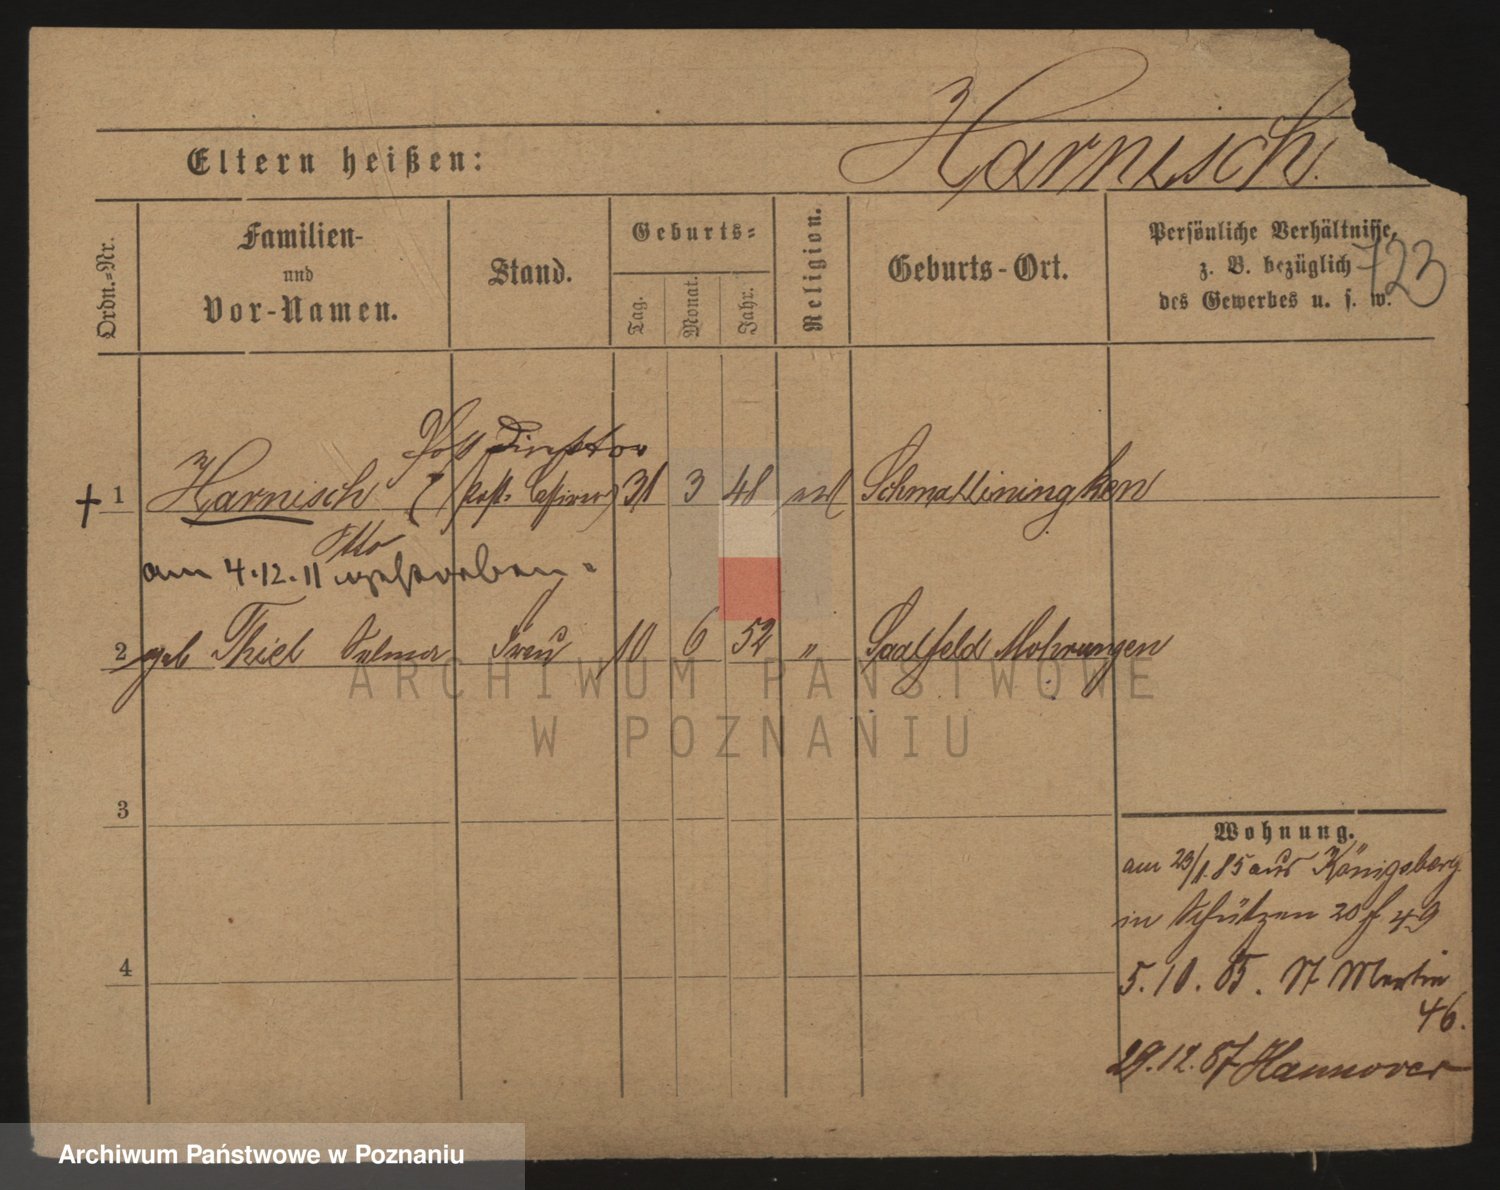 Harnisch.
Eltern heißen:
723
Ordn.-Nr.
Familien-
und
Vor-Namen.
Stand.
Geburts-
Tag.
Monat.
Jahr.
Religion.
Geburts-Ort.
Persönliche Verhältnisse,
z. B. bezüglich
des Gewerbes u. s. w.
Post Direktor
† 1 Harnisch (Post-Cassirer) 31 3 48 evl Schmalleningken
Otto
am 4.12.11 gestorben
2 geb Thiel Selma Frau 10 6 52 " Saalfeld Mohrungen
ARCHIWUM PAŃSTWOWE
W POZNANIU
3
4
Wohnung.
am 23/1.85 aus Königsberg
in Schützen 20 f 49
5.10.85. St Martin
46.
29.12.87 Hannover
Archiwum Państwowe w Poznaniu